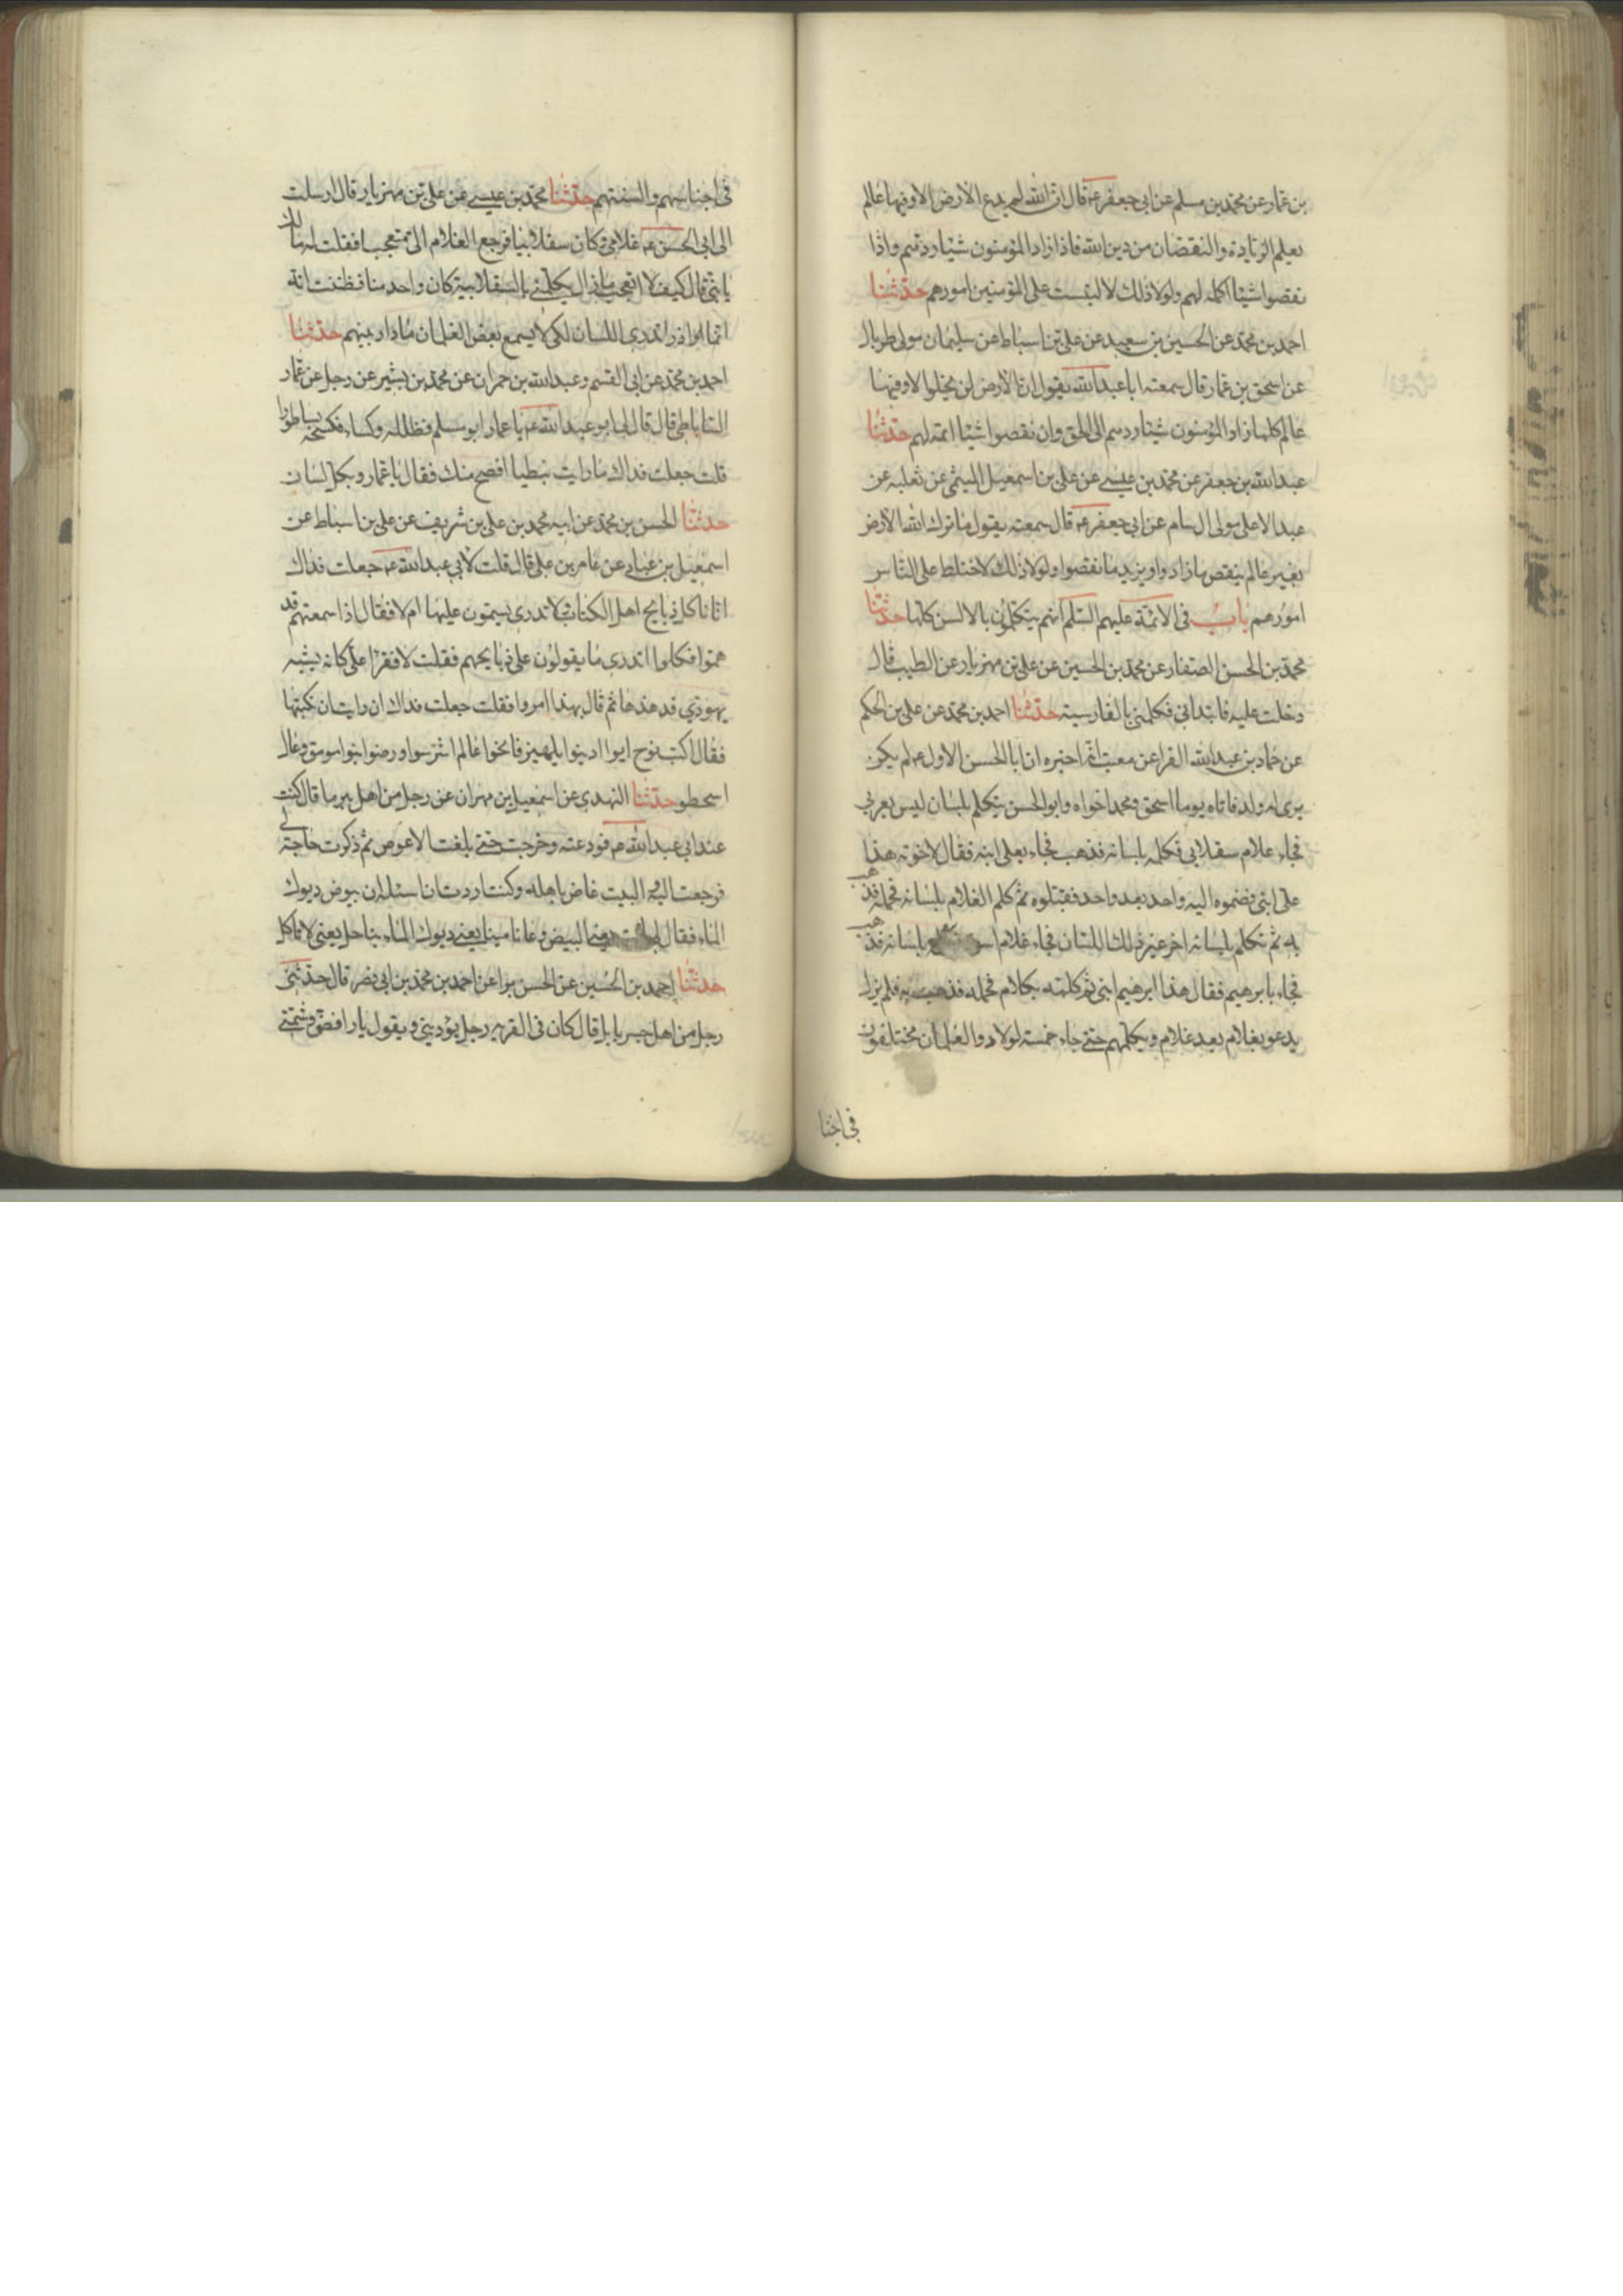 بن عمار عن محمد بن مسلم عن ابى جعفر ع قال ان الله لم يدع الارض الا وفيها عالم
يعلم الزيادة والنقصان من دين الله فاذا زاد المؤمنون شيئا ردهم واذا
نقصوا شيئا اكمله لهم ولولا ذلك لالتبست على المؤمنين امورهم حدثنا
احمد بن محمد عن الحسين بن سعيد عن على بن اسباط عن سليمان مولى طربال
عن اسحق بن عمار قال سمعت ابا عبد الله يقول ان الارض لن يخلوا الا وفيها
عالم كلما زاد المؤمنون شيئا ردهم الى الحق وان نقصوا شيئا اتمه لهم حدثنا
عبد الله بن جعفر عن محمد بن عيسى عن على بن اسمعيل الميثمى عن ثعلبه عن
عبد الاعلى مولى ال سام عن ابى جعفر ع قال سمعته يقول ما ترك الله الارض
بغير عالم ينقص ما زادوا ويزيد ما نقصوا ولولا ذلك لاختلط على الناس
امورهم باب فى الائمة عليهم السلم انهم يتكلمون بالالسن كلها حدثنا
محمد بن الحسن الصفار عن محمد بن الحسين عن على بن مهزيار عن الطيب قال
دخلت عليه فابتدانى فكلمنى بالفارسية حدثنا احمد بن محمد عن على بن الحكم
عن حماد بن عبد الله الفرا عن معتب انه اخبره ان ابا الحسن الاول ع لم يكن
يرى له ولد فاتاه يوما اسحق ومحمد اخواه وابو الحسن يتكلم بلسان ليس بعربى
فجاء غلام سقلابى فكلمه بلسانه فذهب فجاء بعلى ابنه فقال لاخوته هذا
على ابنى فضموه اليه واحد بعد واحد فقبلوه ثم كلم الغلام بلسانه فحمله فذهب
به ثم تكلم بلسانه اخر غير ذلك اللسان فجاء غلام اسود بلسانه فذهب
فجاء بابرهيم فقال هذا ابرهيم ابنى ثم كلمه بكلام فحمله فذهب به فلم يزل
يدعو بغلام بعد غلام ويكلمهم حتى جاء خمسة اولاد والغلمان مختلفون
فى اجنا
فى اجناسهم والسنتهم حدثنا محمد بن عيسى عن على بن مهزيار قال ارسلت
الى ابى الحسن ع غلامى وكان سقلابيا فرجع الغلام الى متعجبا فقلت له مالك
يا بنى قال كيف لا اتعجب ما زال يكلمنى بالسقلابية كان واحد منا فظننت انه
انما اراد اللسان لكى لا يسمع بعض الغلمان ما دار بينهم حدثنا
احمد بن محمد عن ابى القسم وعبد الله بن حمران عن محمد بن بشير عن رجل عن عمار
الساباطى قال قال لى ابو عبد الله ع يا عمار ابو مسلم فظلله وكساء فكسحه بساطورا
قلت جعلت فداك ما رايت نبطيا افصح منك فقال يا عمار وبكل لسان
حدثنا الحسن بن محمد عن ابيه محمد بن على بن شريف عن على بن اسباط عن
اسمعيل بن عباد عن عامر بن على قال قلت لابى عبد الله ع جعلت فداك
انا ناكل ذبايح اهل الكتاب لا ندرى يسمون عليها ام لا فقال اذا سمعتهم قد
سموا فكلوا اتدرى ما يقولون على ذبايحهم فقلت لا فقرا على كانه يشبه
يهودى قد هذها ثم قال بهذا امروا فقلت جعلت فداك ان رايت ان نكتبها
فقال اكتب نوح ايوا ادينوا يلهيز ما لحوا عالم اشرسوا ورضوا بنوا موسق وعال
اسحطو حدثنا النهدى عن اسمعيل بن مهران عن رجل من اهل بيرما قال كنت
عند ابى عبد الله ع فودعته وخرجت حتى بلغت الاعوص ثم ذكرت حاجة لى
فرجعت اليه والبيت غاص باهله وكنت اردت ان اسئله ان بيوض ديوك
الماء فقال لى يعنى البيض وعانا مينا يعنى ديوك الماء بناحل يعنى لا تاكل
حدثنا احمد بن الحسين عن الحسن برا عن احمد بن محمد بن ابى نصر قال حدثنى
رجل من اهل جسر بابل قال كان فى القرية رجل يؤذينى ويقول يا رافضى ويشتمنى